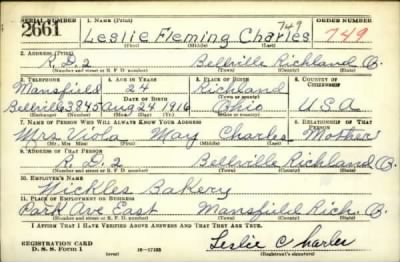 SERIAL NUMBER 1. NAME (Print) ORDER NUMBER
2661 Leslie Fleming Charles 749 749
(First) (Middle) (Last)
2. ADDRESS (Print)
R.D.2 Bellville Richland O.
(Number and street or R. F. D. number) (Town) (County) (State)
3. TELEPHONE 4. AGE IN YEARS 5. PLACE OF BIRTH 6. COUNTRY OF CITIZENSHIP
Mansfield 24 Richland
DATE OF BIRTH (Town or county)
Bellville 3845 Aug 24 1916 Ohio U.S.A
(Exchange) (Number) (Mo.) (Day) (Yr.) (State or country)
7. NAME OF PERSON WHO WILL ALWAYS KNOW YOUR ADDRESS 8. RELATIONSHIP OF THAT PERSON
Mrs Viola May Charles Mother
(Mr., Mrs., Miss) (First) (Middle) (Last)
9. ADDRESS OF THAT PERSON
R.D.2 Bellville Richland O.
(Number and street or R. F. D. number) (Town) (County) (State)
10. EMPLOYER'S NAME
Nickles Bakery
11. PLACE OF EMPLOYMENT OR BUSINESS
Park Ave East Mansfield Rich. O.
(Number and street or R. F. D. number) (Town) (County) (State)
I AFFIRM THAT I HAVE VERIFIED ABOVE ANSWERS AND THAT THEY ARE TRUE.
REGISTRATION CARD
D. S. S. FORM 1 (over) Leslie Charles
(Registrant's signature)